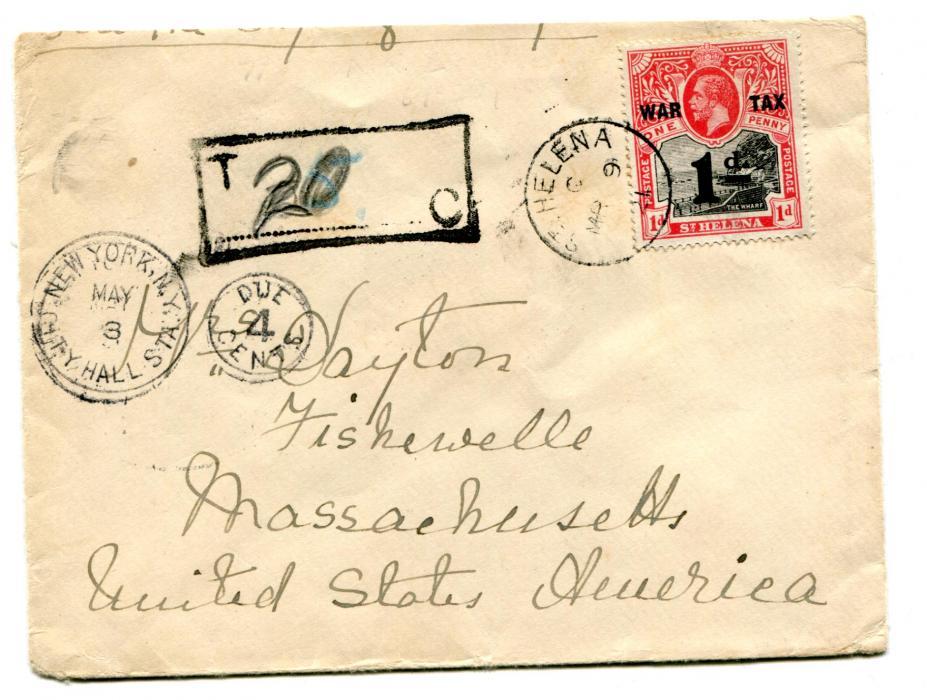 WAR TAX
ONE PENNY
POSTAGE POSTAGE
1d.
THE WHARF
1d ST HELENA 1d
ST. HELENA
C
MR 9
T 20
C
NEW YORK, N.Y.
MAY
3
CITY HALL STA.
DUE
4
CENTS
Mrs Sayton
Fishewelle
Massachusetts
United States America